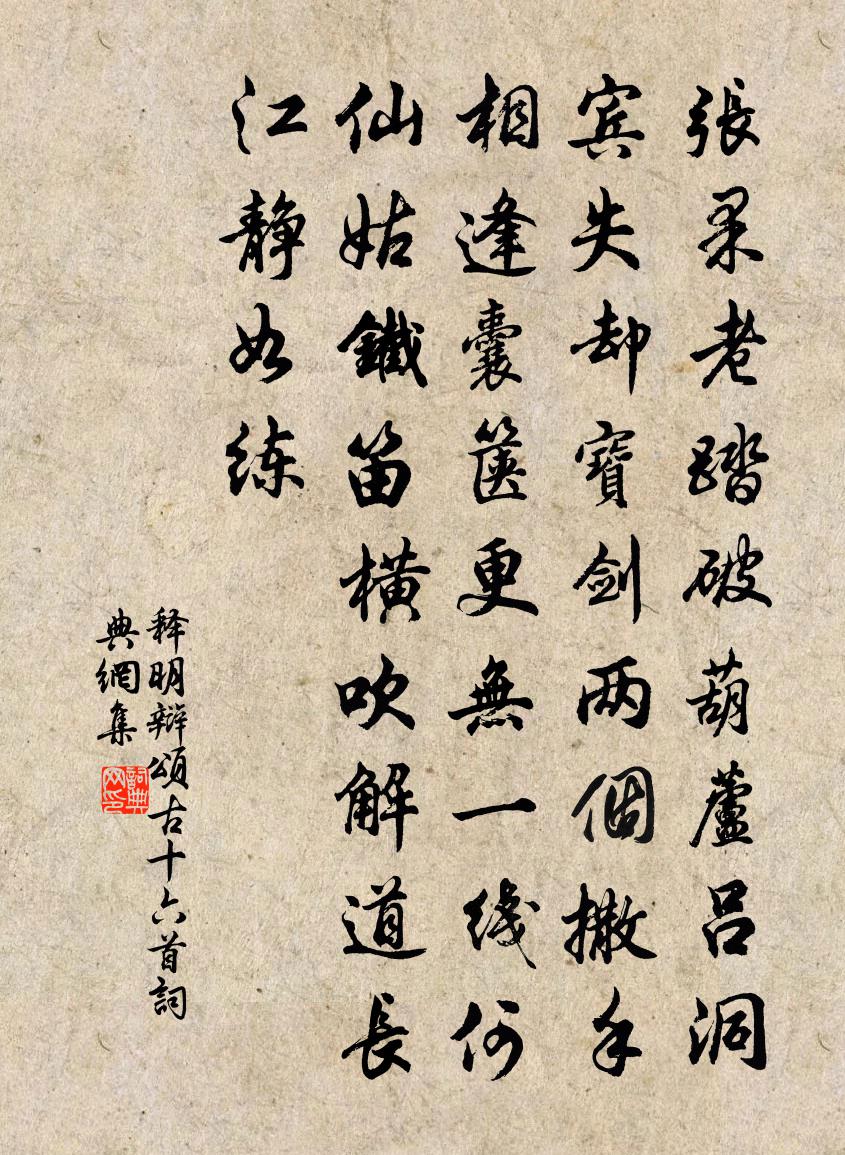 張果老踏破葫蘆呂洞
宾失却寶剑两個撒手
相逢囊箧更無一线何
仙姑鐵笛橫吹解道長
江静如练
释明辯頌古十六首詞
典網集
詞典网印